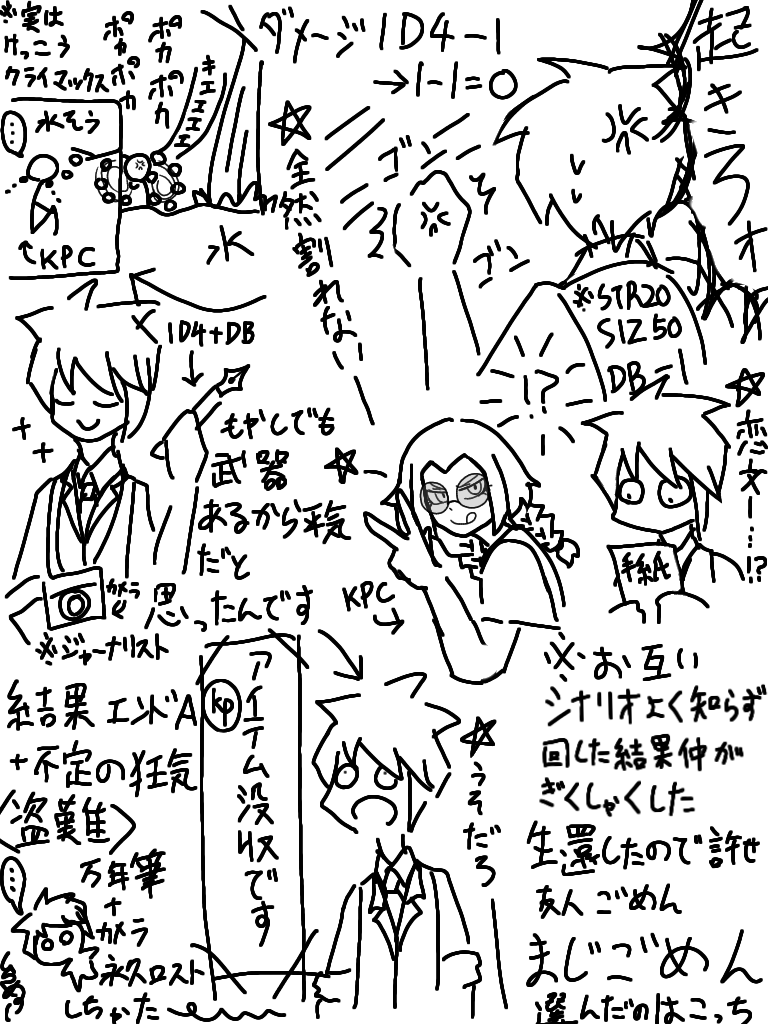 起きろォ
※STR20
SIZ50
DB-1
ダメージ1D4-1
→1-1=0
ゴン
ゴン
☆全然割れない
※実は
けっこう
クライマックス
ポカポカ
ポカポカ
キエエエエ
…
水そう
KPC
水
1D4+DB
もやしでも
武器
あるから平気
だと
思ったんです
カメラ
※ジャーナリスト
!?
☆
KPC
☆恋文ー…!?
手紙
アイテム没収です
kp
☆うそだろ
結果 エンドA
+不定の狂気
<盗難>
万年筆
+
カメラ
永久ロスト
しちゃた
…
※お互い
シナリオよく知らず
回した結果仲が
ぎくしゃくした
生還したので許せ
友人ごめん
まじごめん
選んだのはこっち